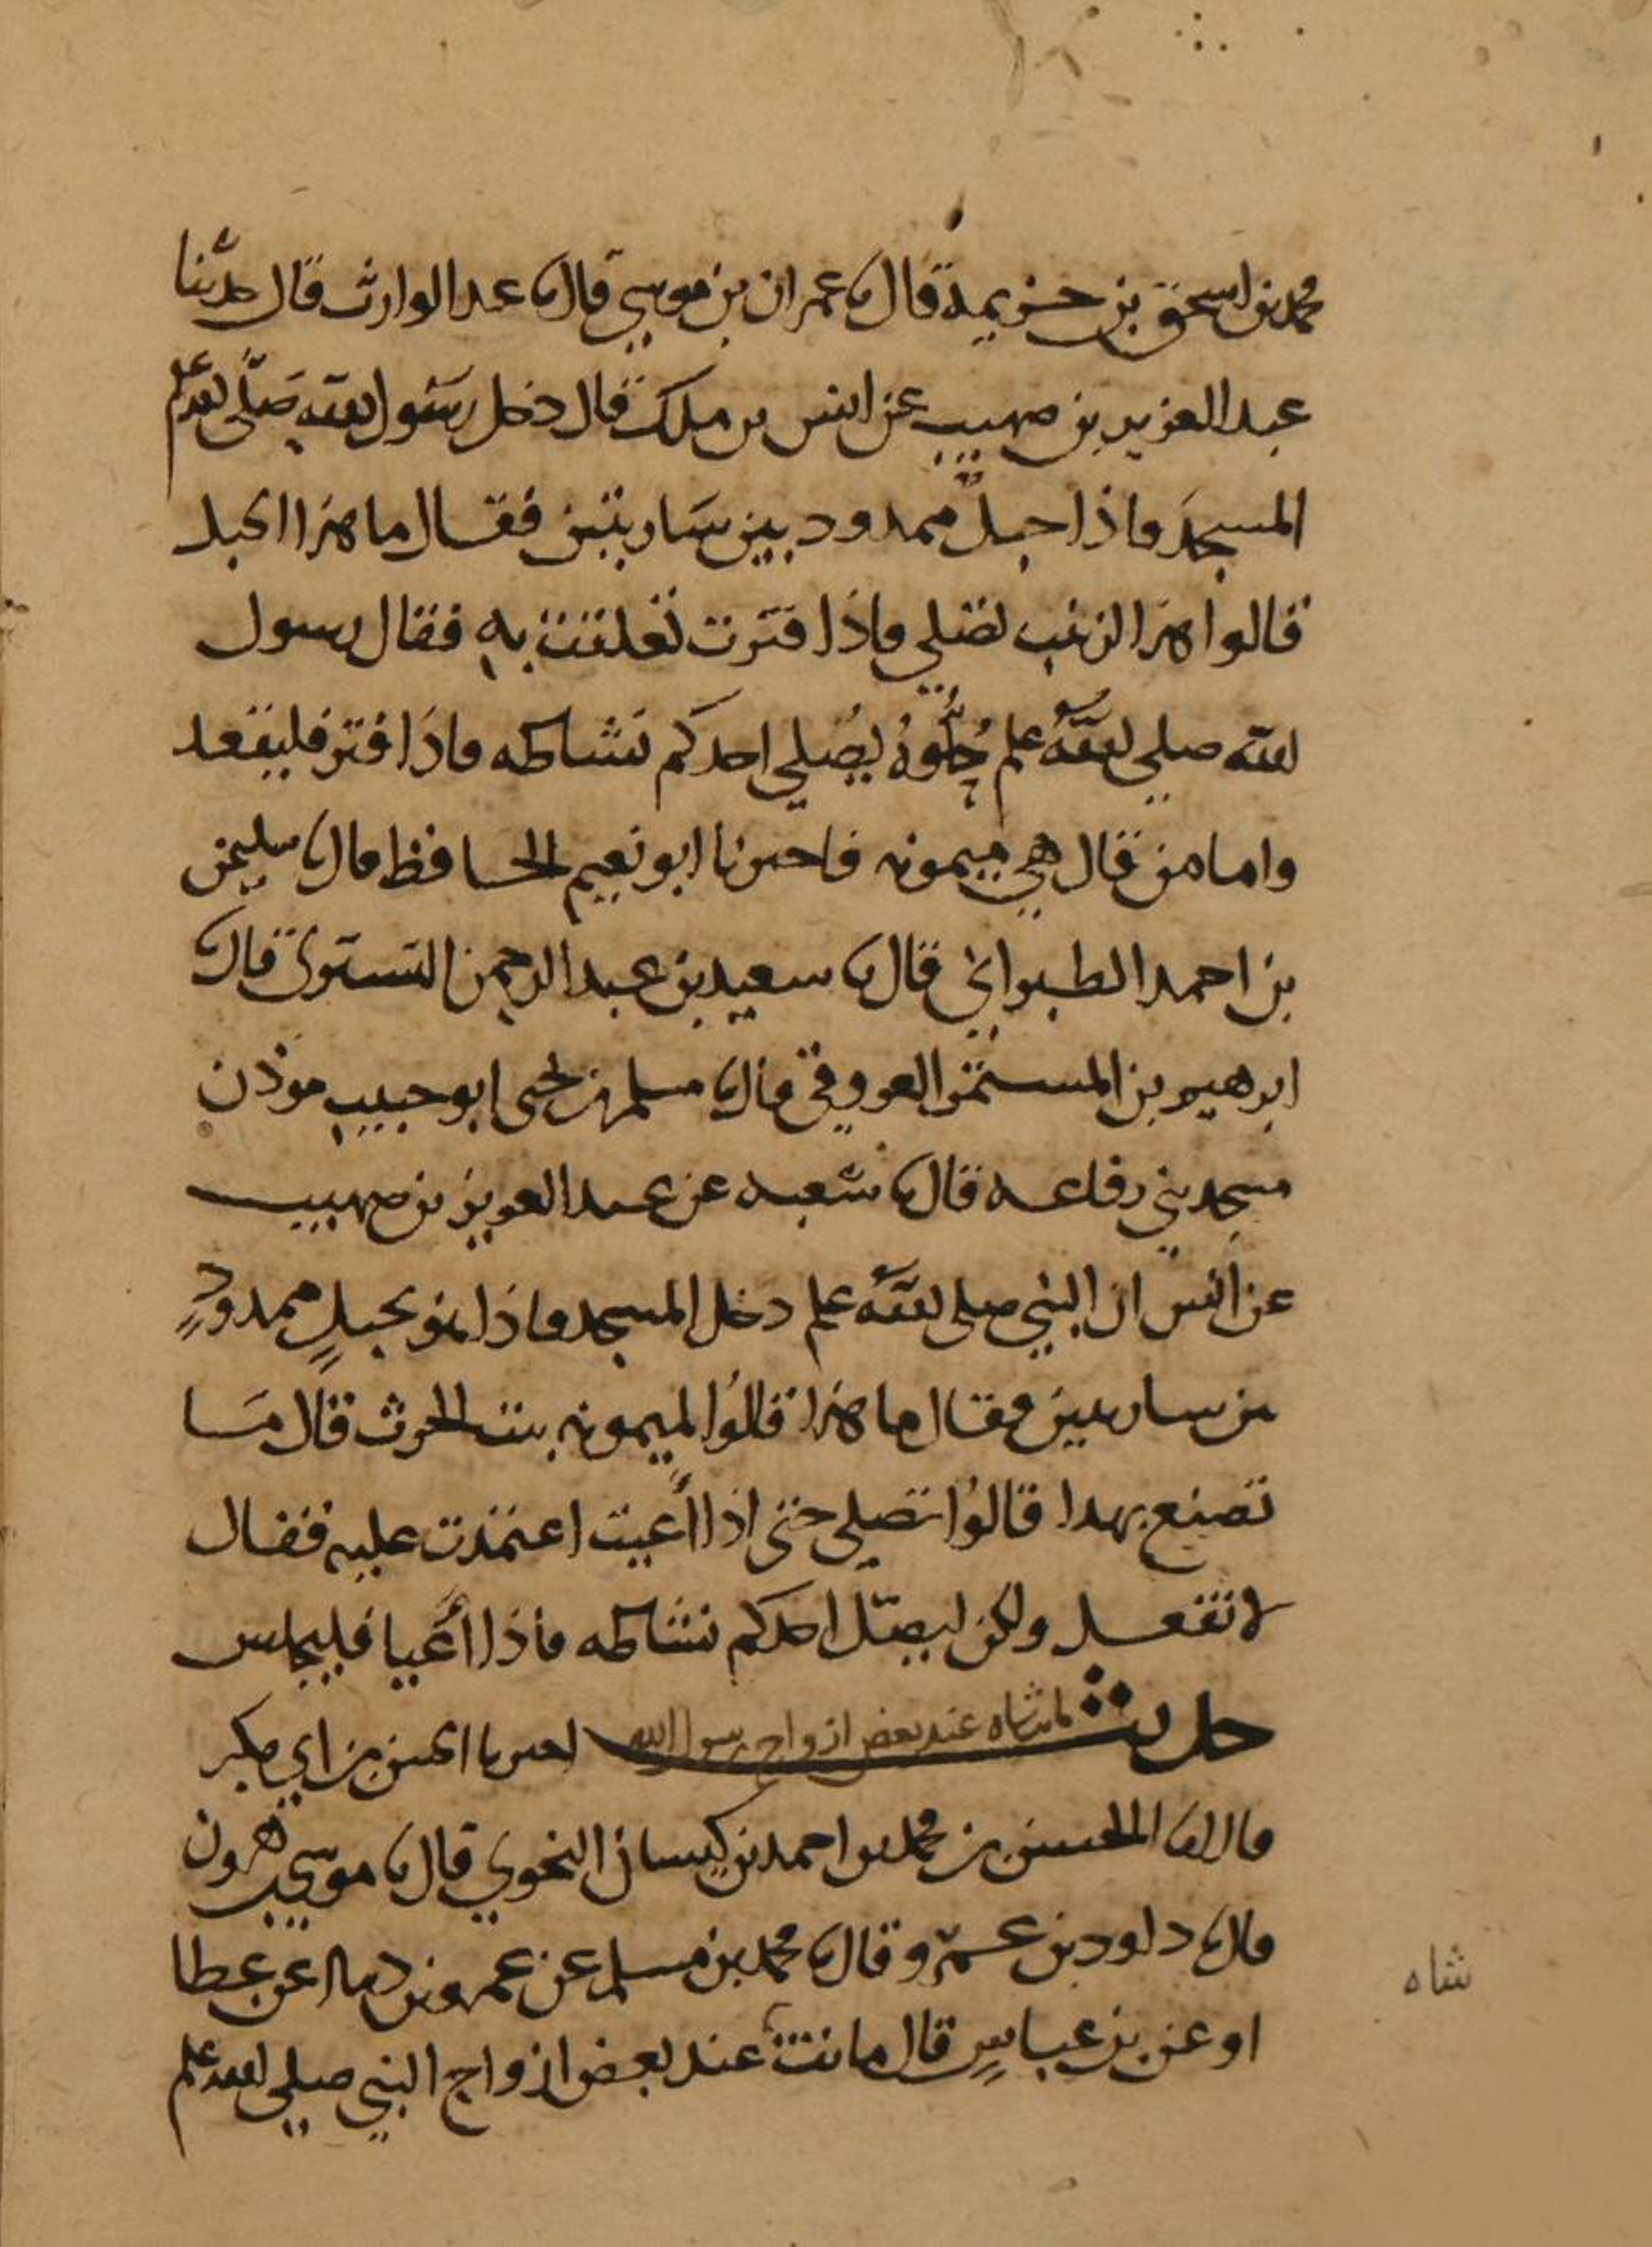 محمد بن اسحق بن خزيمة قال نا عمران بن موسى قال نا عبد الوارث قال حدثنا
عبد العزيز بن صهيب عن انس بن ملك قال دخل رسول الله صلى الله علم
المسجد فاذا حبل ممدود بين ساريتين فقال ما هذا الحبل
قالوا هذا لزينب تصلي فاذا فترت تعلقت به فقال رسول
الله صلى الله علم حلوه ليصلي احدكم نشاطه فاذا فتر فليقعد
واما من قال هي ميمونه فاخبرنا ابو نعيم الحافظ قال نا سليمن
بن احمد الطبراني قال نا سعيد بن عبد الرحمن التستري قال نا
ابرهيم بن المستمر العروقي قال نا مسلم بن يحيى ابو حبيب موذن
مسجد بني رفاعه قال نا شعبه عن عبد العزيز بن صهيب
عن انس ان النبي صلى الله علم دخل المسجد فاذا هو بحبل ممدود
بين ساريتين فقال ما هذا قالوا لميمونه بنت الحرث قال ما
تصنع بهذا قالوا تصلي حتى اذا أعيت اعتمدت عليه فقال
لا تفعل ولكن ليصل احدكم نشاطه فاذا أعيا فليجلس
حديث ماتت شاه عند بعض ازواج رسول الله اخبرنا الحسن بن ابي بكر
قال انا الحسن بن محمد بن احمد بن كيسان النحوي قال نا موسى بن هرون
قال نا داود بن عمرو قال نا محمد بن مسلم عن عمرو بن دينار عن عطا
او عن بن عباس قال ماتت عند بعض ازواج النبي صلى الله علم
شاه